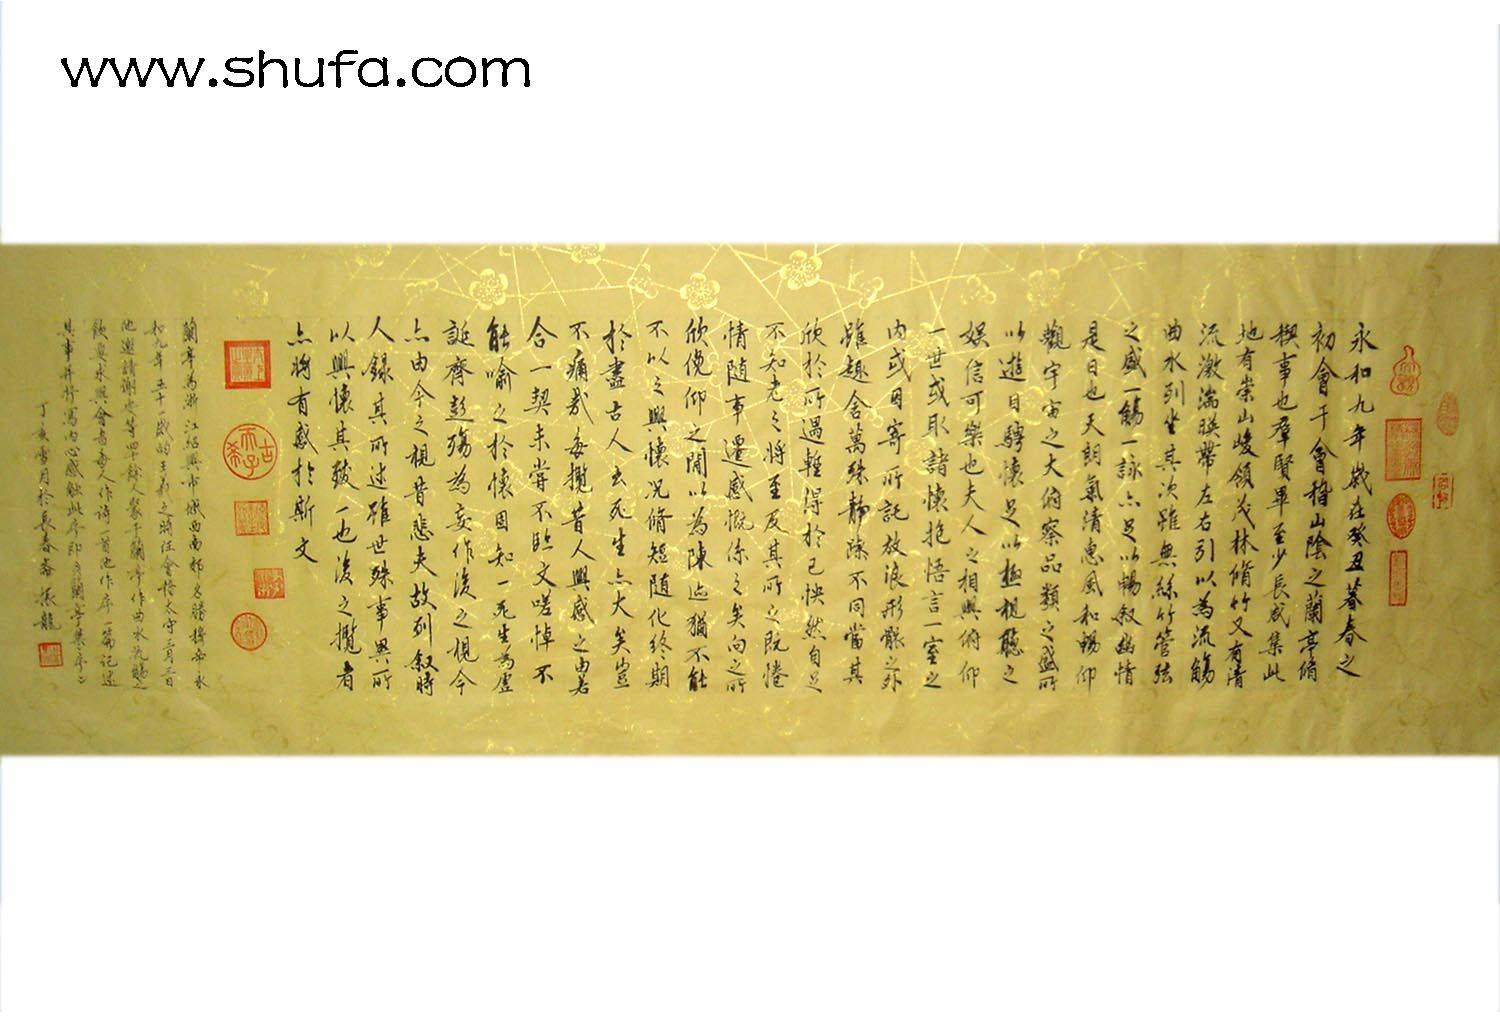 www.shufa.com
永和九年歲在癸丑暮春之
初會于會稽山陰之蘭亭脩
稧事也羣賢畢至少長咸集此
地有崇山峻領茂林脩竹又有清
流激湍暎帶左右引以為流觴
曲水列坐其次雖無絲竹管弦
之盛一觴一詠亦足以暢叙幽情
是日也天朗氣清惠風和暢仰
觀宇宙之大俯察品類之盛所
以遊目騁懷足以極視聽之
娛信可樂也夫人之相與俯仰
一世或取諸懷抱悟言一室之
內或因寄所託放浪形骸之外
雖趣舍萬殊靜躁不同當其
欣於所遇輊得於己怏然自足
不知老之將至及其所之既惓
情隨事遷感慨係之矣向之所
欣俛仰之閒以為陳迹猶不能
不以之興懷況脩短隨化終期
於盡古人云死生亦大矣豈
不痛哉每攬昔人興感之由若
合一契未嘗不臨文嗟悼不
能喻之於懷固知一死生為虛
誕齊彭殤為妄作後之視今
亦由今之視昔悲夫故列叙時
人錄其所述雖世殊事異所
以興懷其致一也後之攬者
亦將有感於斯文
蘭亭為浙江紹興市城西南部名勝 永
和九年五十一歲的王羲之時任會稽太守三月三日
他邀請謝安等四十餘人聚于蘭亭作曲水流觴之
飲 與會者每人作詩一首他作序一篇記述
其事并抒寫內心感觸此序即為蘭亭集序
丁亥 月於長春 振龍